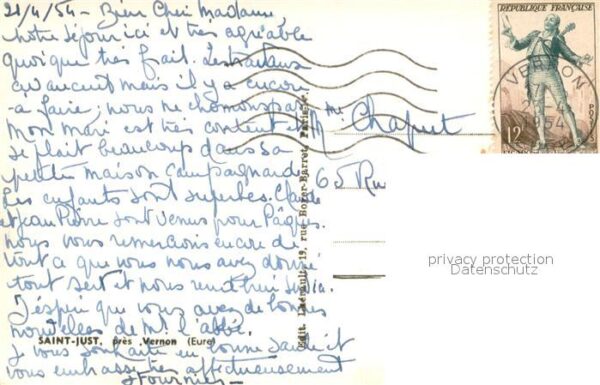 21/4/54 - Bien Chère Madame,
notre séjour ici et très agréable
quoique très frait. Les travaux
avancent mais il y a encore
a faire; nous ne chomons pas
Mon Mari est très content et
se plait beaucoup dans sa
petite maison campagnarde
Les enfants sont superbes. Claude
et Jean Pierre sont venus pour Pâques.
nous vous remercions encore de
tout ce que vous nous avez donné
tout sert et nous rend bien service.
J'espère que vous avez de bonnes
nouvelles de Mr l'abbé.
SAINT-JUST, près Vernon (Eure)
Je vous souhaite en bonne santé et
vous embrasse très affectueusement
Fournier
Edit. Laérault, 19, rue Borer-Barret, Paris
Mme Chapuet
65 Ru
RÉPUBLIQUE FRANÇAISE
12F
VERNON
1954
privacy protection
Datenschutz